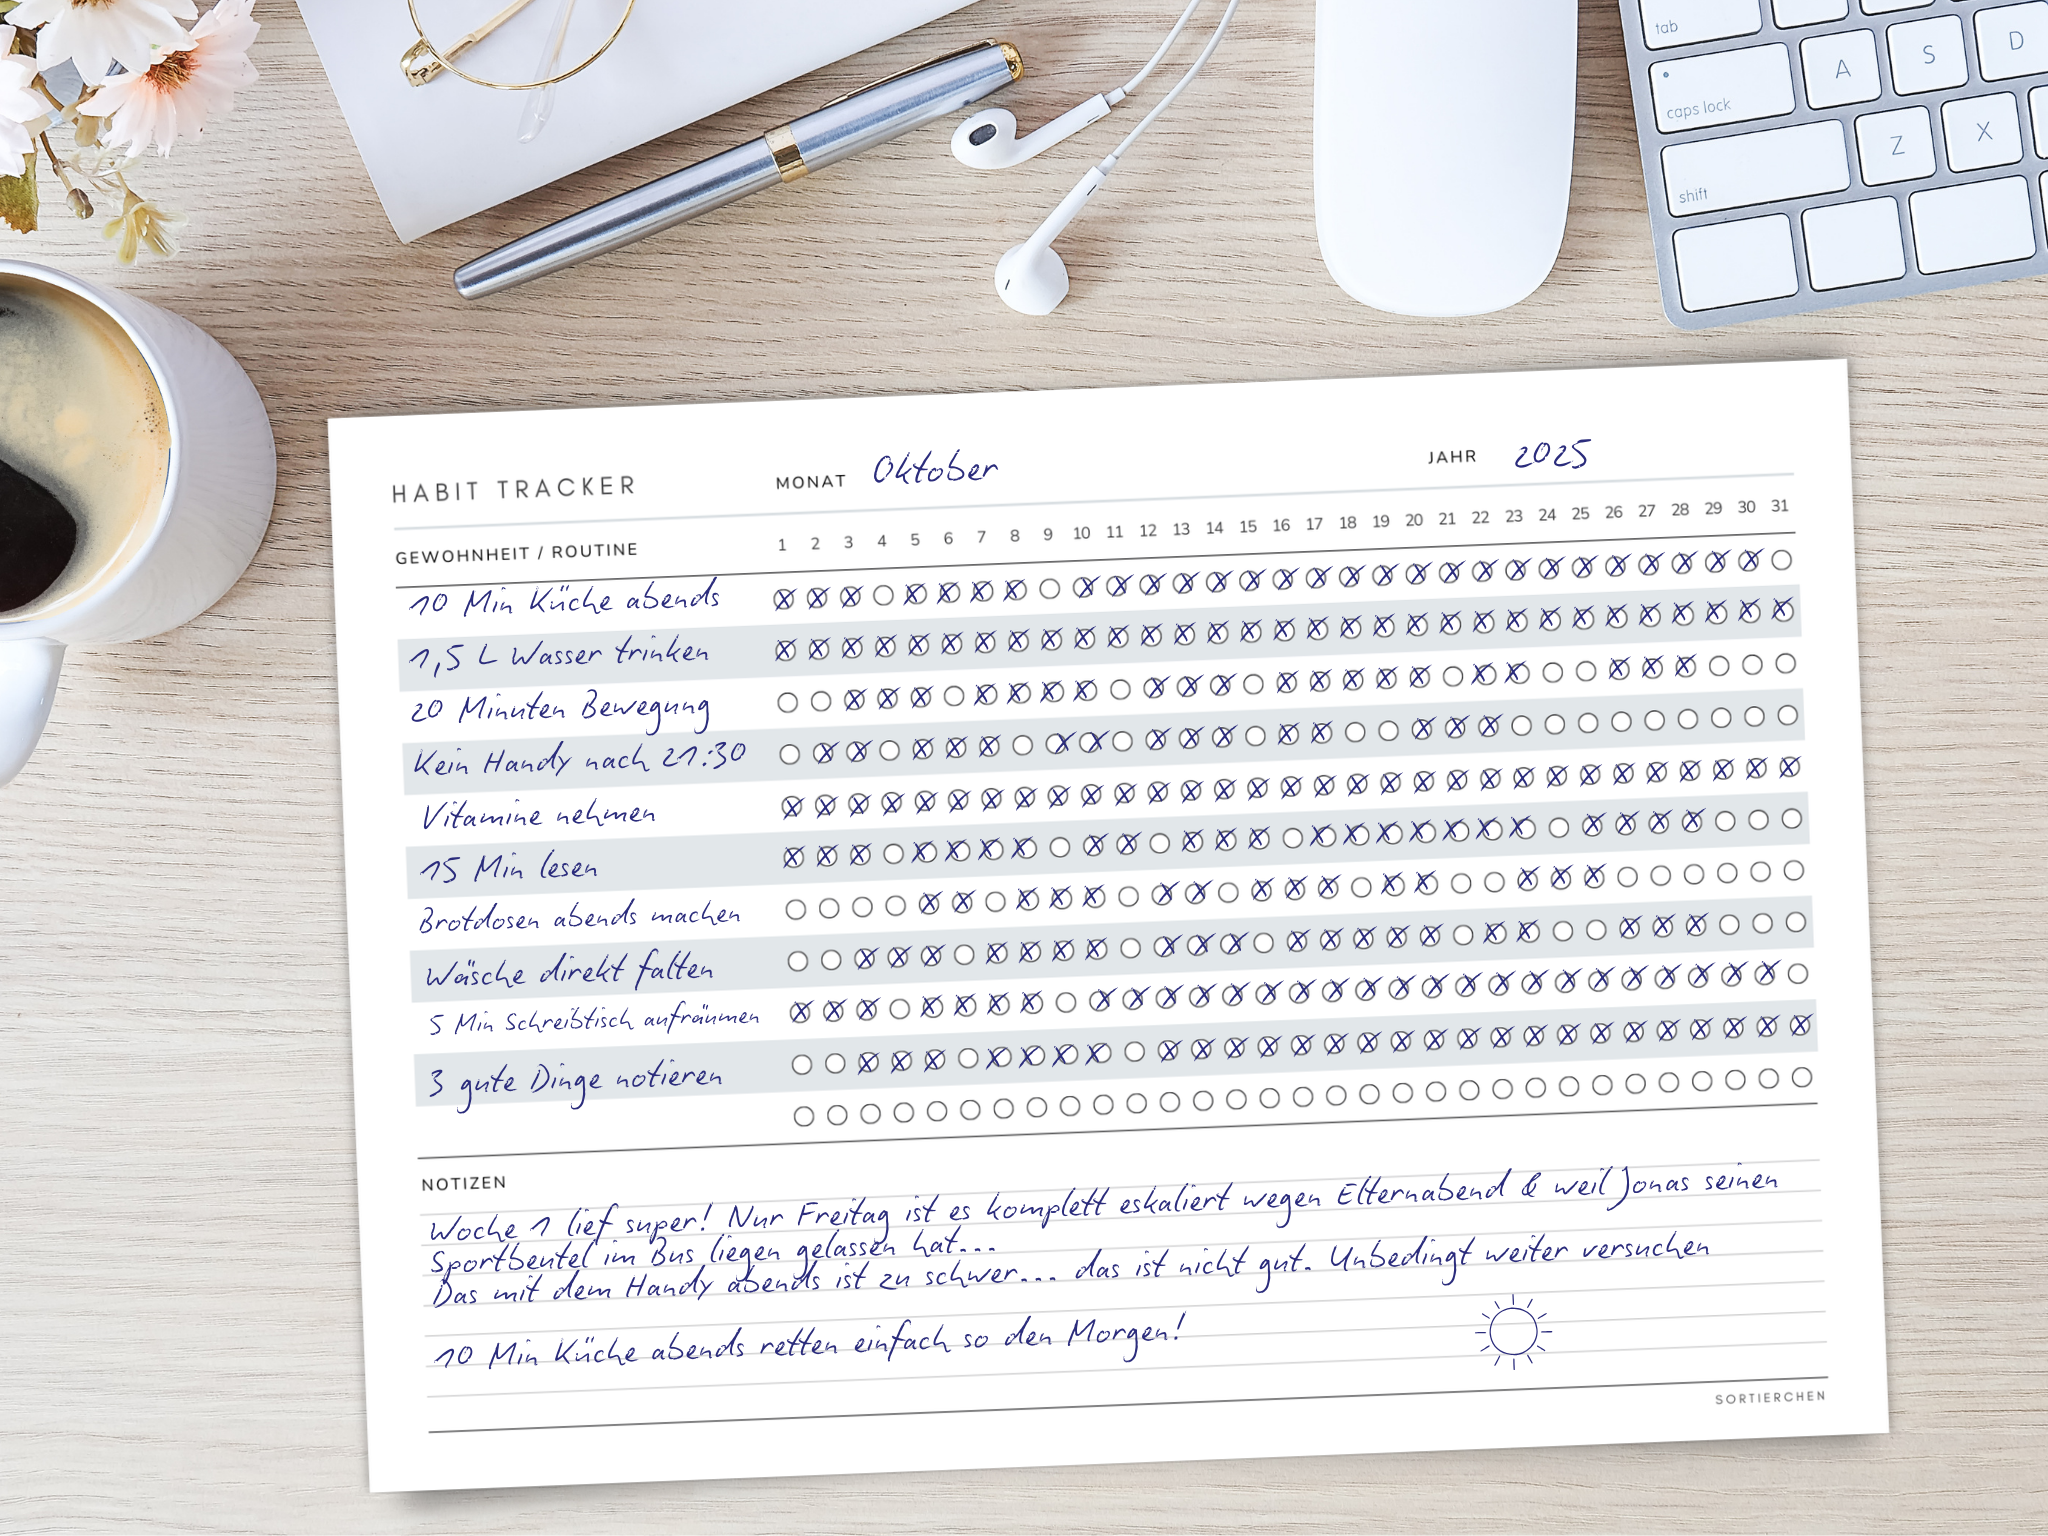 tab
caps lock
A
S
D
shift
Z
X
HABIT TRACKER
MONAT Oktober
JAHR 2025
GEWOHNHEIT / ROUTINE
1 2 3 4 5 6 7 8 9 10 11 12 13 14 15 16 17 18 19 20 21 22 23 24 25 26 27 28 29 30 31
10 Min Küche abends
1,5 L Wasser trinken
20 Minuten Bewegung
Kein Handy nach 21:30
Vitamine nehmen
15 Min lesen
Brotdosen abends machen
Wäsche direkt falten
5 Min Schreibtisch aufräumen
3 gute Dinge notieren
NOTIZEN
Woche 1 lief super! Nur Freitag ist es komplett eskaliert wegen Elternabend & weil Jonas seinen
Sportbeutel im Bus liegen gelassen hat...
Das mit dem Handy abends ist zu schwer... das ist nicht gut. Unbedingt weiter versuchen
10 Min Küche abends retten einfach so den Morgen!
SORTIERCHEN